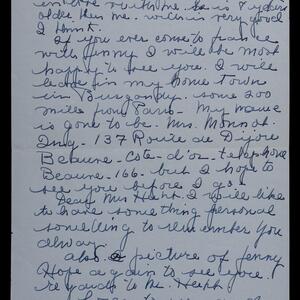 older than me. which is very good
I think.
If you ever come to France
with Jenny I will be most
happy to see you. I will
leave in my home town
in Burgundy. some 200
miles from Paris - My name
is gone to be. Mrs. Monnot.
137 Route de Dijon
Beaune - Cote-d'or - telephone
Beaune - 166 - but I hope to
see you before I go.
Dear Mrs Hecht. I will like
to have something personal
something to remember you
alway.
also a picture of Jenny
Hope again to see you.
regards to Mr. Hecht